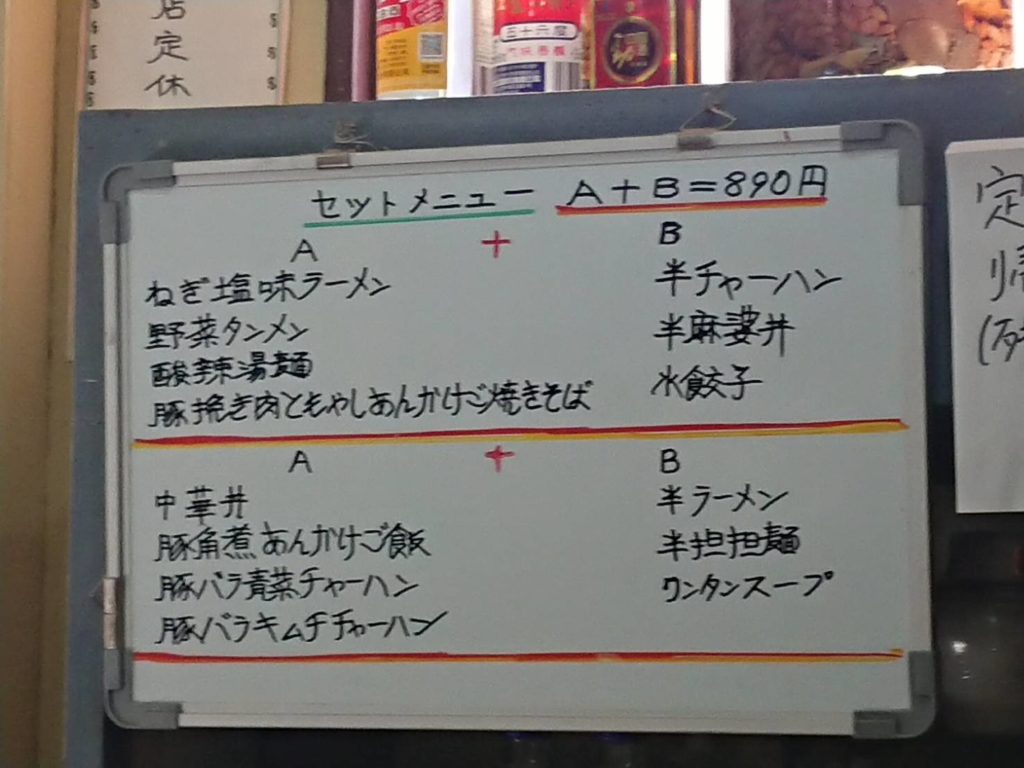 店
定
休
五十六度
セットメニュー A+B=890円
A + B
ねぎ塩味ラーメン 半チャーハン
野菜タンメン 半麻婆丼
酸辣湯麺 水餃子
豚挽き肉ともやしあんかけご焼きそば
A + B
中華丼 半ラーメン
豚角煮あんかけご飯 半担担麺
豚バラ青菜チャーハン ワンタンスープ
豚バラキムチチャーハン
定
帰